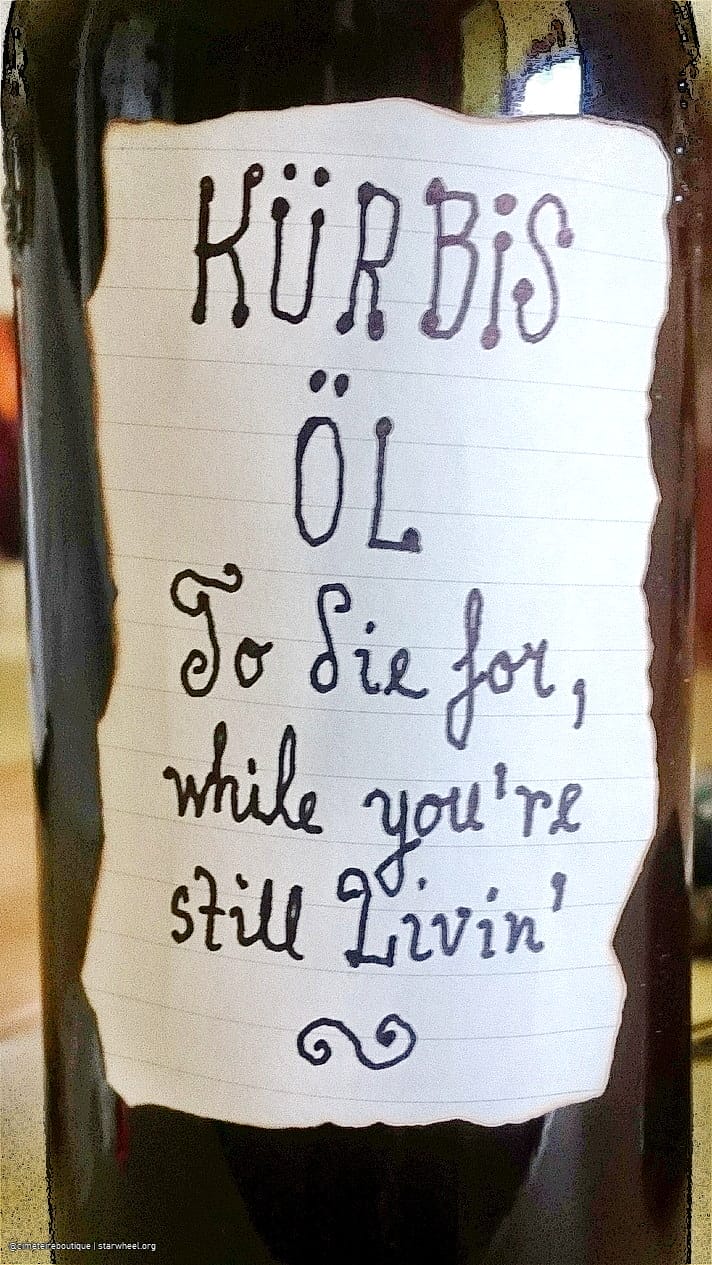 KÜRBiS
ÖL
To die for,
while you're
still Livin'
@cimeteireboutique | starwheel.org